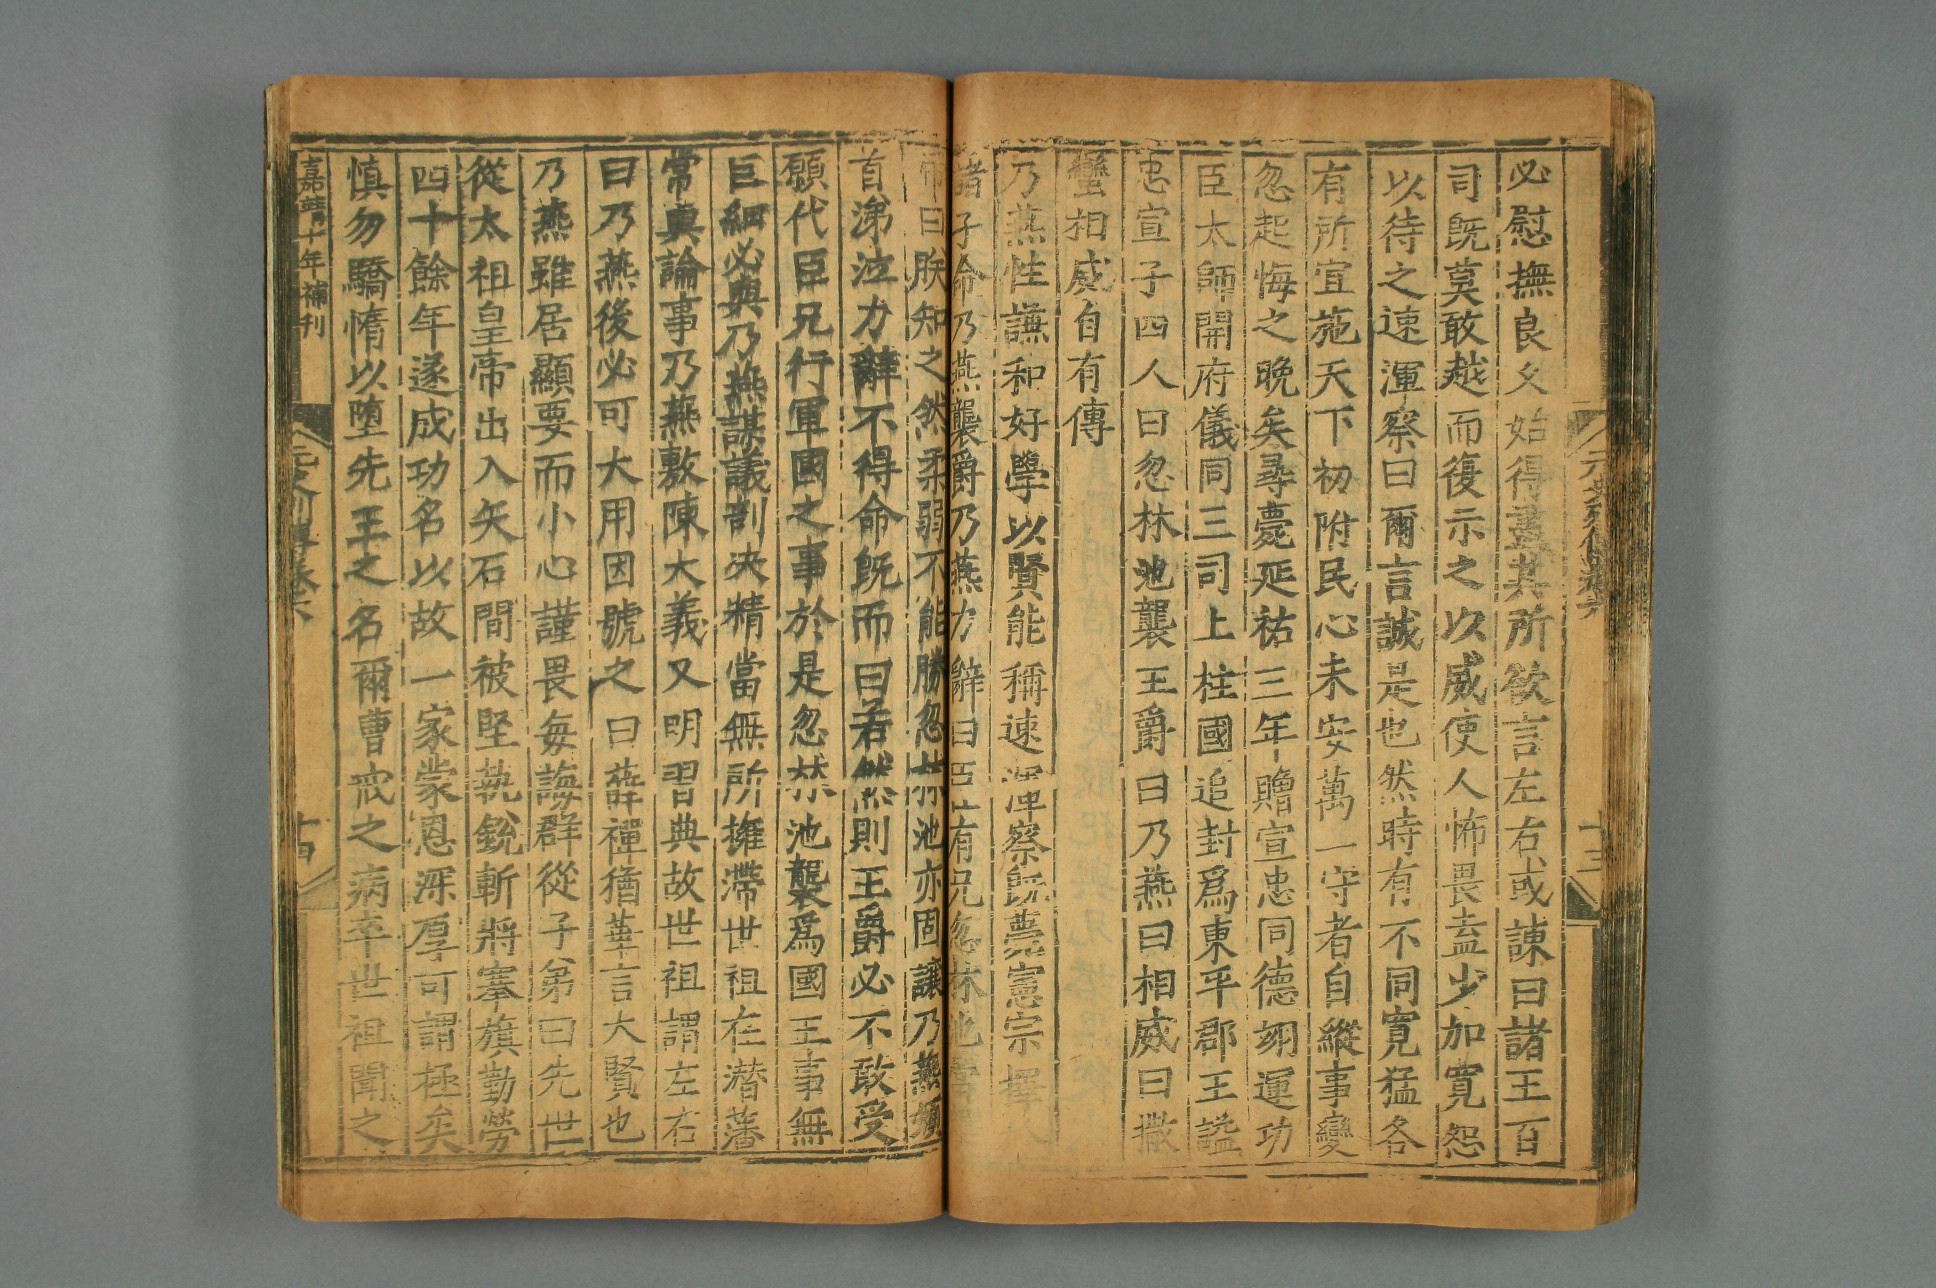 元史列傳卷六
十三
必慰撫良久始得盡其所欲言左右或諫曰諸王百
司既莫敢越而復示之以威使人怖畏盍少加寛怨
以待之速渾察曰爾言誠是也然時有不同寛猛各
有所宜施天下初附民心未安萬一守者自縱事變
忽起悔之晚矣尋薨延祐三年贈宣忠同德翊運功
臣太師開府儀同三司上柱國追封爲東平郡王謚
忠宣子四人曰忽林池襲王爵曰乃燕曰相威曰撒
蠻相威自有傳
乃燕性謙和好學以賢能稱速渾察既薨憲宗擇人
諸子命乃燕襲爵乃燕力辭曰臣有兄忽林池當
帝曰朕知之然柔弱不能勝忽林池亦固讓乃燕頓
首涕泣力辭不得命既而曰若然則王爵必不敢受
願代臣兄行軍國之事於是忽林池襲爲國王事無
巨細必與乃燕謀議剖决精當無所擁滯世祖在潛藩
常與論事乃燕敷陳大義又明習典故世祖謂左右
曰乃燕後必可大用因號之曰薛禪猶華言大賢也
乃燕雖居顯要而小心謹畏每誨群從子弟曰先世
從太祖皇帝出入矢石間被堅執銳斬將搴旗勤勞
四十餘年遂成功名以故一家蒙恩深厚可謂極矣
慎勿驕惰以墮先王之名爾曹戒之病卒世祖聞之
嘉靖十年補刊
元史列傳卷六
十四